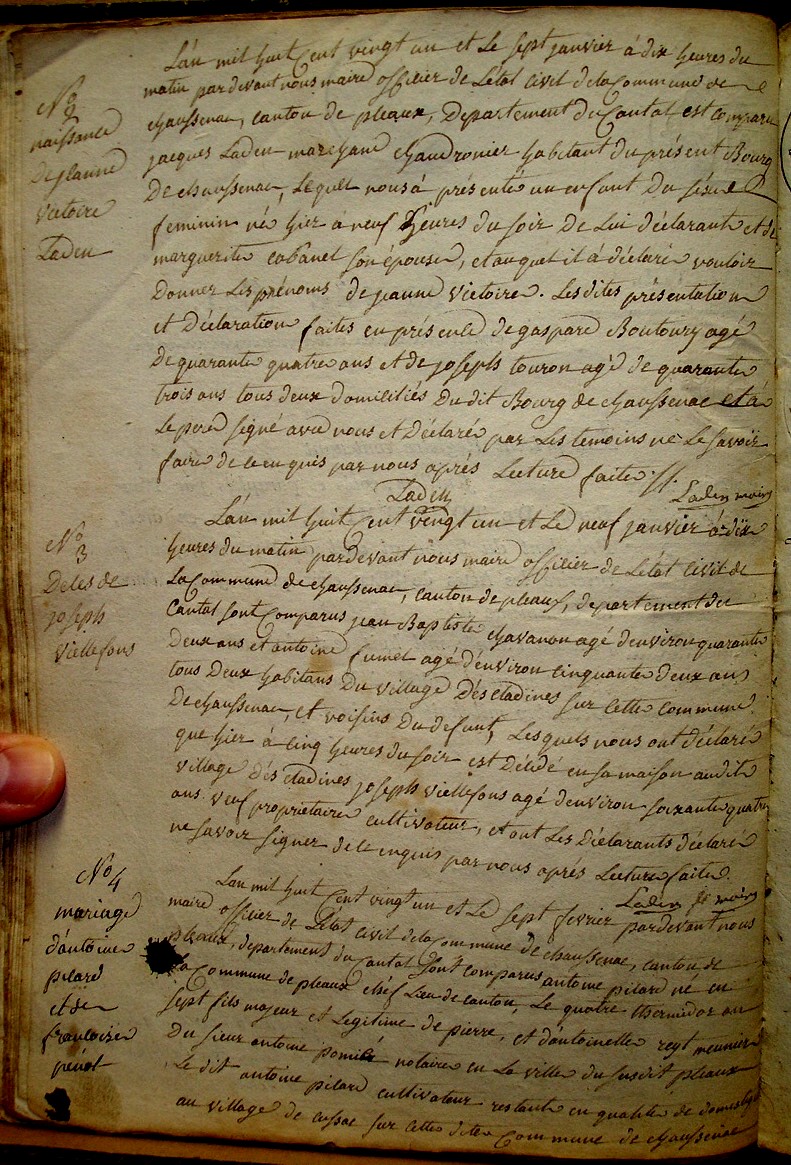 No
2
naissance
De jeanne
Victoire
Laden
L'an mil huit Cent vingt un et Le sept janvier à dix heures du
matin pardevant nous maire officier de L'état Civil de la Commune de
chaussenac, canton de pleaux, Departement du Cantal est comparu
jacques Laden marchand chaudronier habitant du présent Bourg
De chaussenac, Lequel nous à présenté un enfant Du séxe
feminin né hier à neuf heures du soir De Lui déclarant et de
marguerite cabanet son épouse, et auquel il à déclaré vouloir
Donner Les prénoms de jeanne Victoire. Les dites présentation
et Déclaration faites en présence de gaspard Boutoury agé
De quarante quatre ans et de joseph touron agé de quarante
trois ans tous deux domiciliés Du dit Bourg de chaussenac et à
Le pere signé avec nous et Déclaré par Les temoins ne Le savoir
faire de ce enquis par nous aprés Lecture faite ./.
Laden Laden maire
No
3
Deces de
joseph
Viellefons
L'an mil huit Cent vingt un et Le neuf janvier à dix
heures du matin pardevant nous maire officier de L'état Civil de
La Commune de chaussenac, canton de pleaux, departement du
Cantal sont Comparus jean Baptiste chavanon agé d'environ quarante
Deux ans et antoine fumel agé d'environ cinquante deux ans
tous Deux habitans Du village Des cladines sur Cette Commune
De chaussenac, et voisins Du defunt, Lesquels nous ont déclaré
que hier à cinq heures du soir est Décédé en sa maison audit
village Des cladines joseph Viellefons agé d'environ soixante quatre
ans veuf propriétaire cultivateur, et ont Les Déclarants déclaré
ne savoir signer de ce enquis par nous aprés Lecture faite.
Laden maire
No 4
mariage
d'antoine
pilard
et de
francoise
L'an mil huit Cent vingt un et Le sept fevrier pardevant nous
maire officier de L'état Civil de la Commune de chaussenac, canton de
pleaux, departement du Cantal sont comparus antoine pilard né en
La Commune de pleaux chéf Lieu de canton, Le quatre thermidor an
sept fils majeur et Legitime de pierre, et d'antoinette reyt meunier
Du sieur antoine pomié notaire en La ville du susdit pleaux
Le dit antoine pilard cultivateur restant en qualité de domestique
au village de cussac sur cette dite Commune de chaussenac